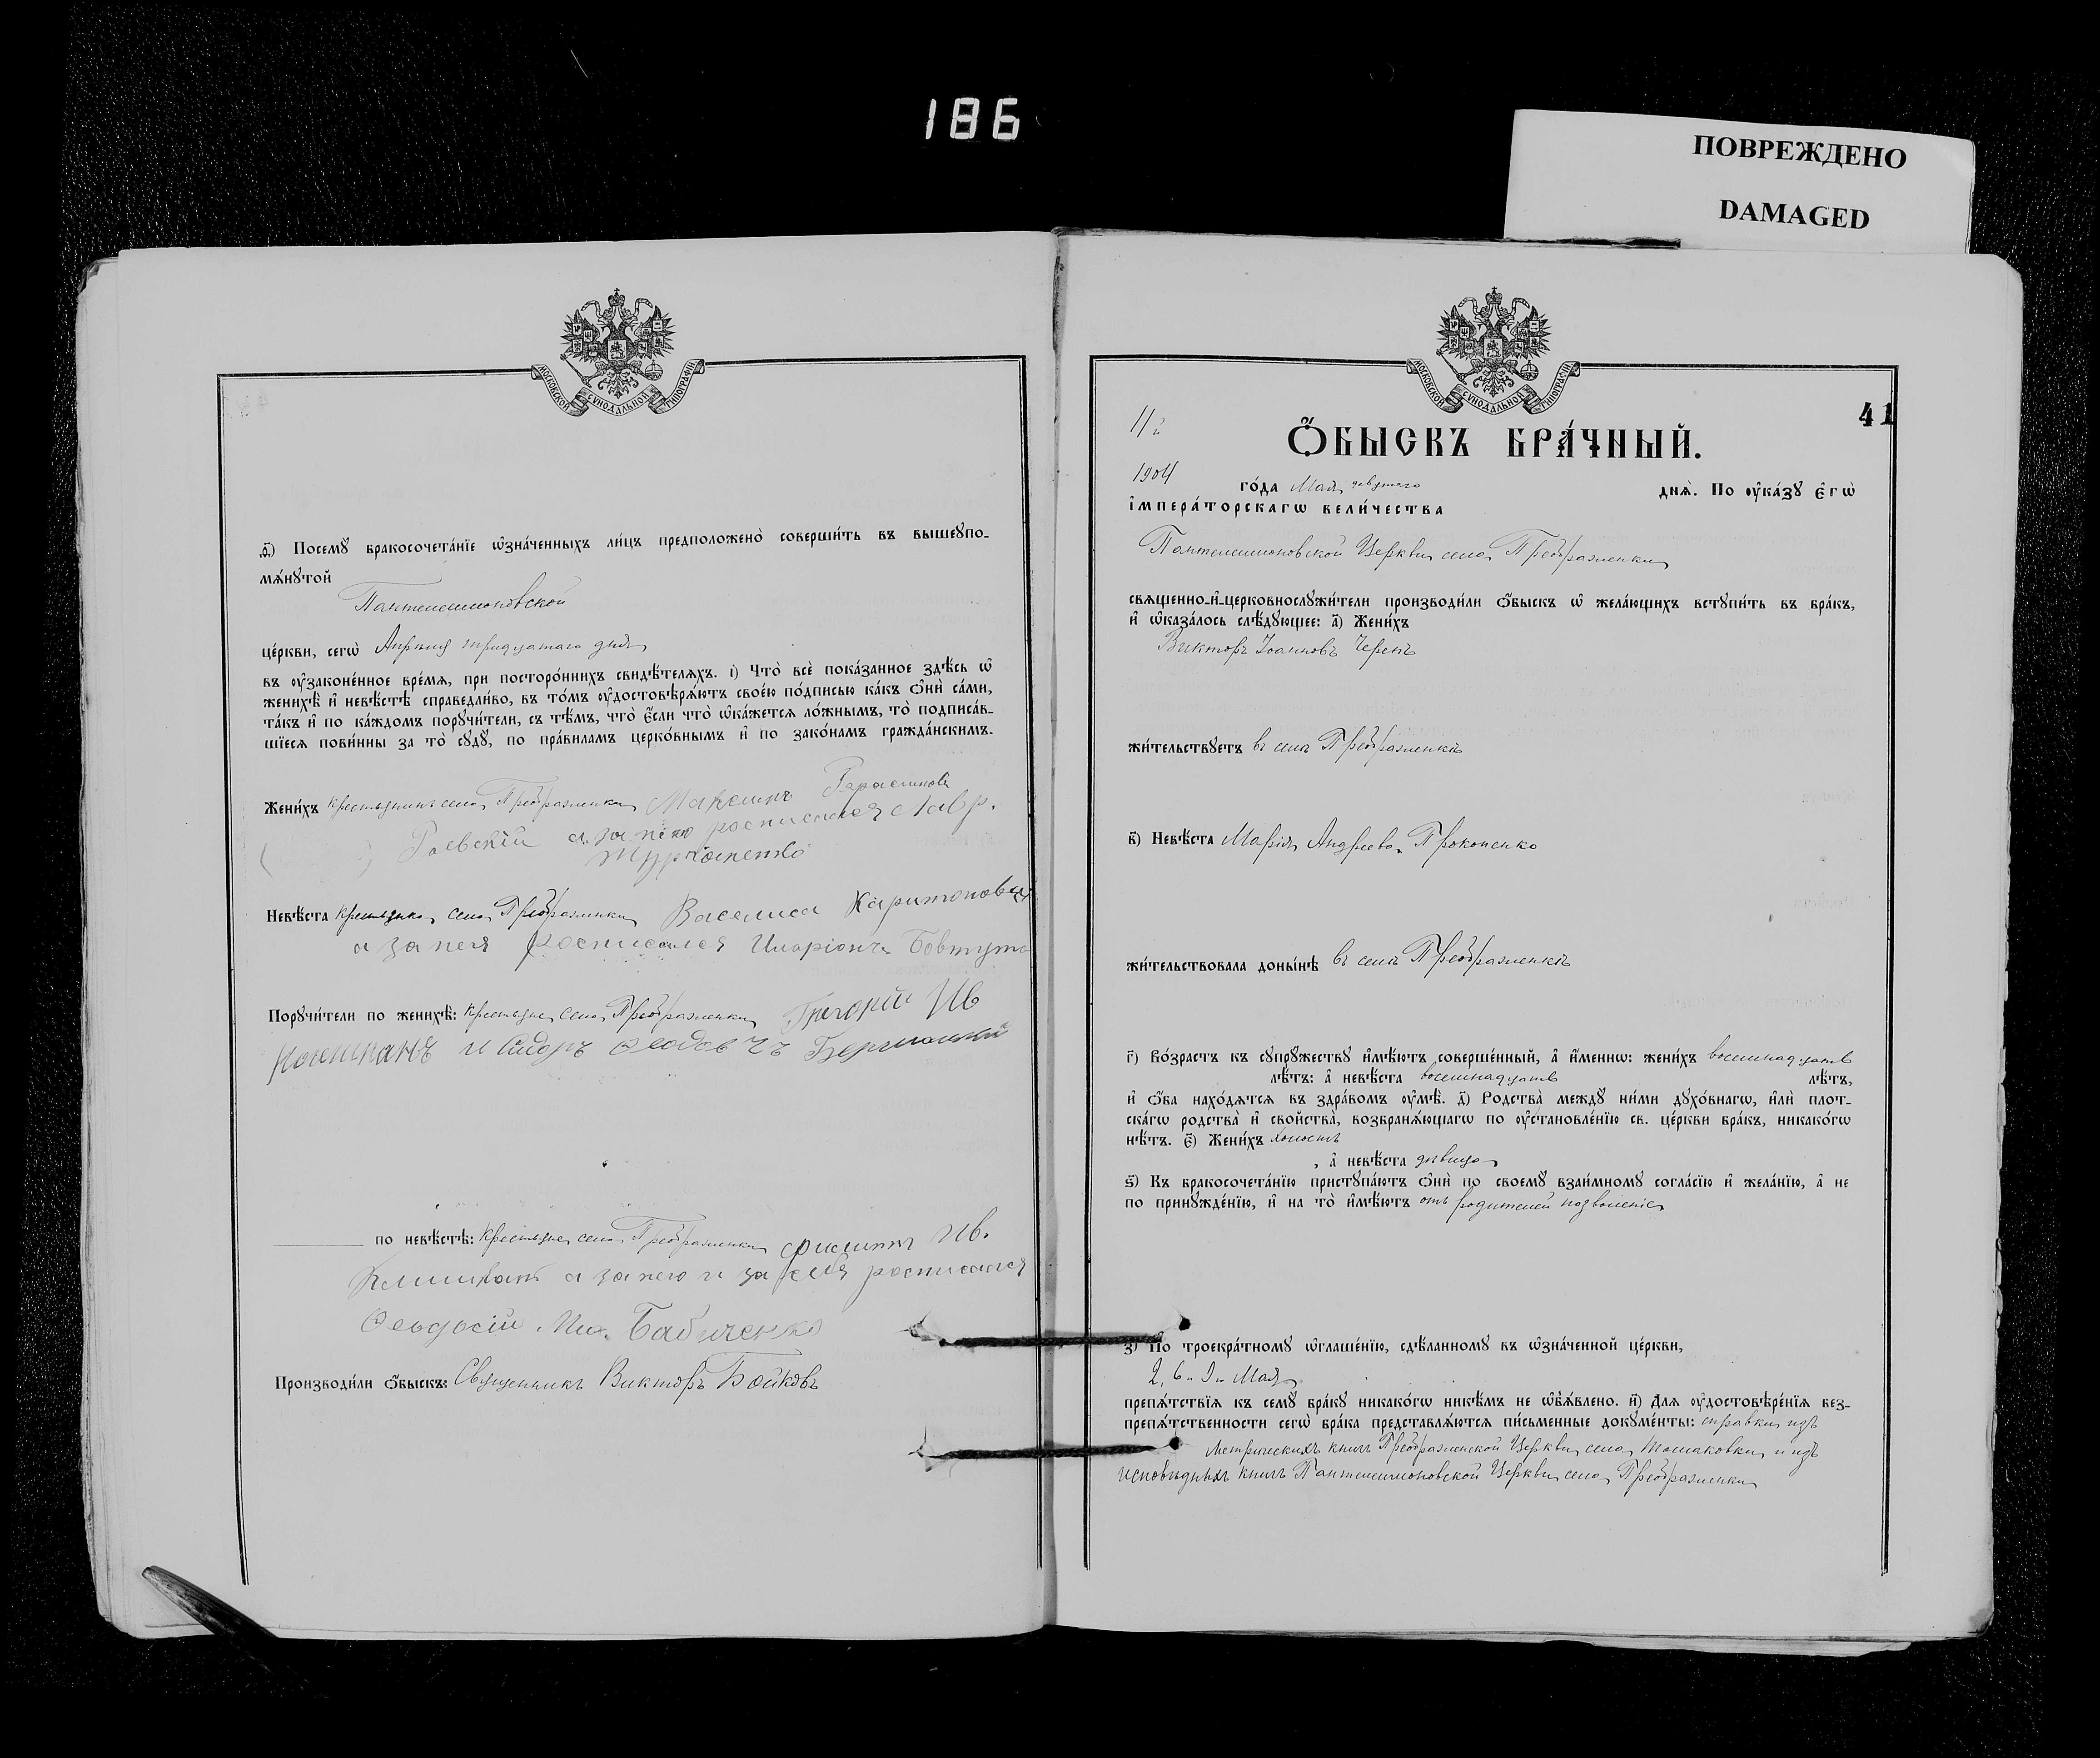 186
ПОВРЕЖДЕНО
DAMAGED
МОСКОВСКОЙ СѴНОДАЛЬНОЙ ТИПОГРАФІИ
ѳ҃) Посемꙋ̀ бракосочета́нїе ѡ҆зна́ченныхъ ли́цъ предположено̀ соверши́ть въ вышеꙋпо-
мѧ́нꙋтой
Пантелеимоновской
це́ркви, сегѡ̀ Апрѣля тридцатаго дня
въ ᲂу҆законе́нное вре́мѧ, при посторо́ннихъ свидѣ́телѧхъ. і҃) Что̀ всѐ пока́занное здѣ́сь ѡ҆
женихѣ̀ и҆ невѣ́стѣ справедли́во, въ то́мъ ᲂу҆достовѣрѧ́ютъ свое́ю по́дписью ка́къ ѻ҆нѝ са́ми,
та́къ и҆ по ка́ждомъ порꙋчи́тели, съ тѣ́мъ, что̀ є҆́сли что̀ ѡ҆ка́жетсѧ ло́жнымъ, то̀ подписа́в-
шїесѧ пови́нны за то̀ сꙋдꙋ̀, по пра́виламъ церко́внымъ и҆ по зако́намъ гражда́нскимъ.
Жени́хъ крестьянинъ села Преображенки Максимъ Герасимовъ
Гоевскій а за него росписался Лавр.
Невѣ́ста крестьянка села Преображенки Василиса Харитонова
а за нея росписался Иларіонъ Бовтута
Порꙋчи́тели по женихѣ̀: крестьяне села Преображенки Григорій Ив
и Сидоръ
по невѣ́стѣ: крестьяне села Преображенки Филипъ Ив.
Клишкань а за него и за себя росписался
Ѳеодосій Мих. Бабиченко
Производи́ли ѻ҆́быскъ: Священникъ Викторъ Бойковъ
МОСКОВСКОЙ СѴНОДАЛЬНОЙ ТИПОГРАФІИ
41
11й
Ѻ҆́БЫСКЪ БРА́ЧНЫЙ.
1904 го́да Мая девятаго днѧ̀. По ᲂу҆ка́зꙋ є҆гѡ̀
і҆мпера́торскагѡ вели́чества
Пантелеимоновской Церкви села Преображенки
свѧще́нно-и҆-церковнослꙋжи́тели производи́ли ѻ҆́быскъ ѡ҆ жела́ющихъ встꙋпи́ть въ бра́къ,
и҆ ѡ҆каза́лось слѣ́дꙋющее: а҃) Жени́хъ
Викторъ Іоанновъ Черепъ
жи́тельствꙋетъ въ селѣ Преображенкѣ
в҃) Невѣ́ста Марія Андреева Прокопенко
жи́тельствовала доны́нѣ въ селѣ Преображенкѣ
г҃) Во́зрастъ къ сꙋпрꙋ́жествꙋ и҆мѣ́ютъ соверше́нный, а҆ и҆́меннѡ: жени́хъ восемнадцать
лѣ́тъ: а҆ невѣ́ста восемнадцать лѣ́тъ,
и҆ ѻ҆́ба нахо́дѧтсѧ въ здра́вомъ ᲂу҆мѣ̀. д҃) Родства̀ междꙋ̀ ни́ми дꙋхо́внагѡ, и҆лѝ плот-
ска́гѡ родства̀ и҆ свойства̀, возбранѧ́ющагѡ по ᲂу҆становле́нїю св. це́ркви бра́къ, никако́гѡ
нѣ́тъ. є҃) Жени́хъ холостъ
, а҆ невѣ́ста дѣвица
ѕ҃) Къ бракосочета́нїю пристꙋпа́ютъ ѻ҆нѝ по своемꙋ̀ взаи́мномꙋ согла́сїю и҆ жела́нїю, а҆ не
по принꙋжде́нїю, и҆ на то̀ и҆мѣ́ютъ отъ родителей позволеніе
з҃) По троекра́тномꙋ ѡ҆глаше́нїю, сдѣ́ланномꙋ въ ѡ҆зна́ченной це́ркви,
2, 6 и 9 Мая
препѧ́тствїѧ къ семꙋ̀ бра́кꙋ никако́гѡ никѣ́мъ не ѡ҆б̾ѧ́влено. и҃) Длѧ ᲂу҆достовѣре́нїѧ без-
препѧ́тственности сегѡ̀ бра́ка представлѧ́ютсѧ пи́сьменные докꙋме́нты: справки изъ
метрическихъ книгъ Преображенской Церкви села Томаковки и изъ
исповѣдныхъ книгъ Пантелеимоновской Церкви села Преображенки